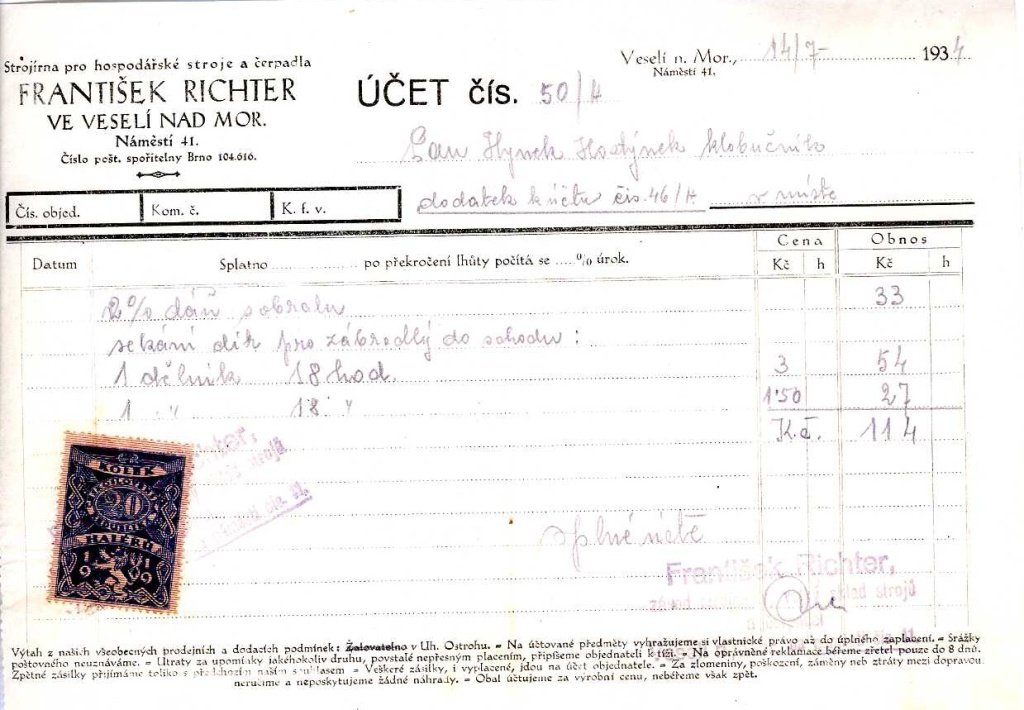 Strojírna pro hospodářské stroje a čerpadla
FRANTIŠEK RICHTER
VE VESELÍ NAD MOR.
Náměstí 41.
Číslo pošt. spořitelny Brno 104.616.
Veselí n. Mor., 14/7- 1934
Náměstí 41.
ÚČET čís. 50/4
Pan Hynek Hodýnek klobučník
dodatek k účtu čís. 46/4. v místě
Čís. objed. Kom. č. K. f. v.
Cena Obnos
Datum Splatno .................... po překročení lhůty počítá se ..... % úrok. Kč h Kč h
2% dáň z obratu 33
sekání děr pro zábradlý do schodu:
1 dělník 18 hod. 3 54
1 " 18 " 1.50 27
Kč. 114
KOLEK
ČESKOSLOVENSKÁ
20
REPUBLIKA
HALÉŘŮ
1919
František Richter,
sklad strojů
Výtah z našich všeobecných prodejních a dodacích podmínek: Žalovatelno v Uh. Ostrohu. = Na účtované předměty vyhražujeme si vlastnické právo až do úplného zaplacení. = Srážky
poštovného neuznáváme. = Utraty za upomínky jakéhokoliv druhu, povstalé nepřesným placením, připíšeme objednateli k tíži. = Na oprávněné reklamace béřeme zřetel pouze do 8 dnů.
Zpětné zásilky přijímáme toliko s předchozím naším souhlasem = Veškeré zásilky, i vyplacené, jdou na účet objednatele. = Za zlomeniny, poškození, záměny neb ztráty mezi dopravou
neručíme a neposkytujeme žádné náhrady. = Obal účtujeme za výrobní cenu, nebéřeme však zpět.